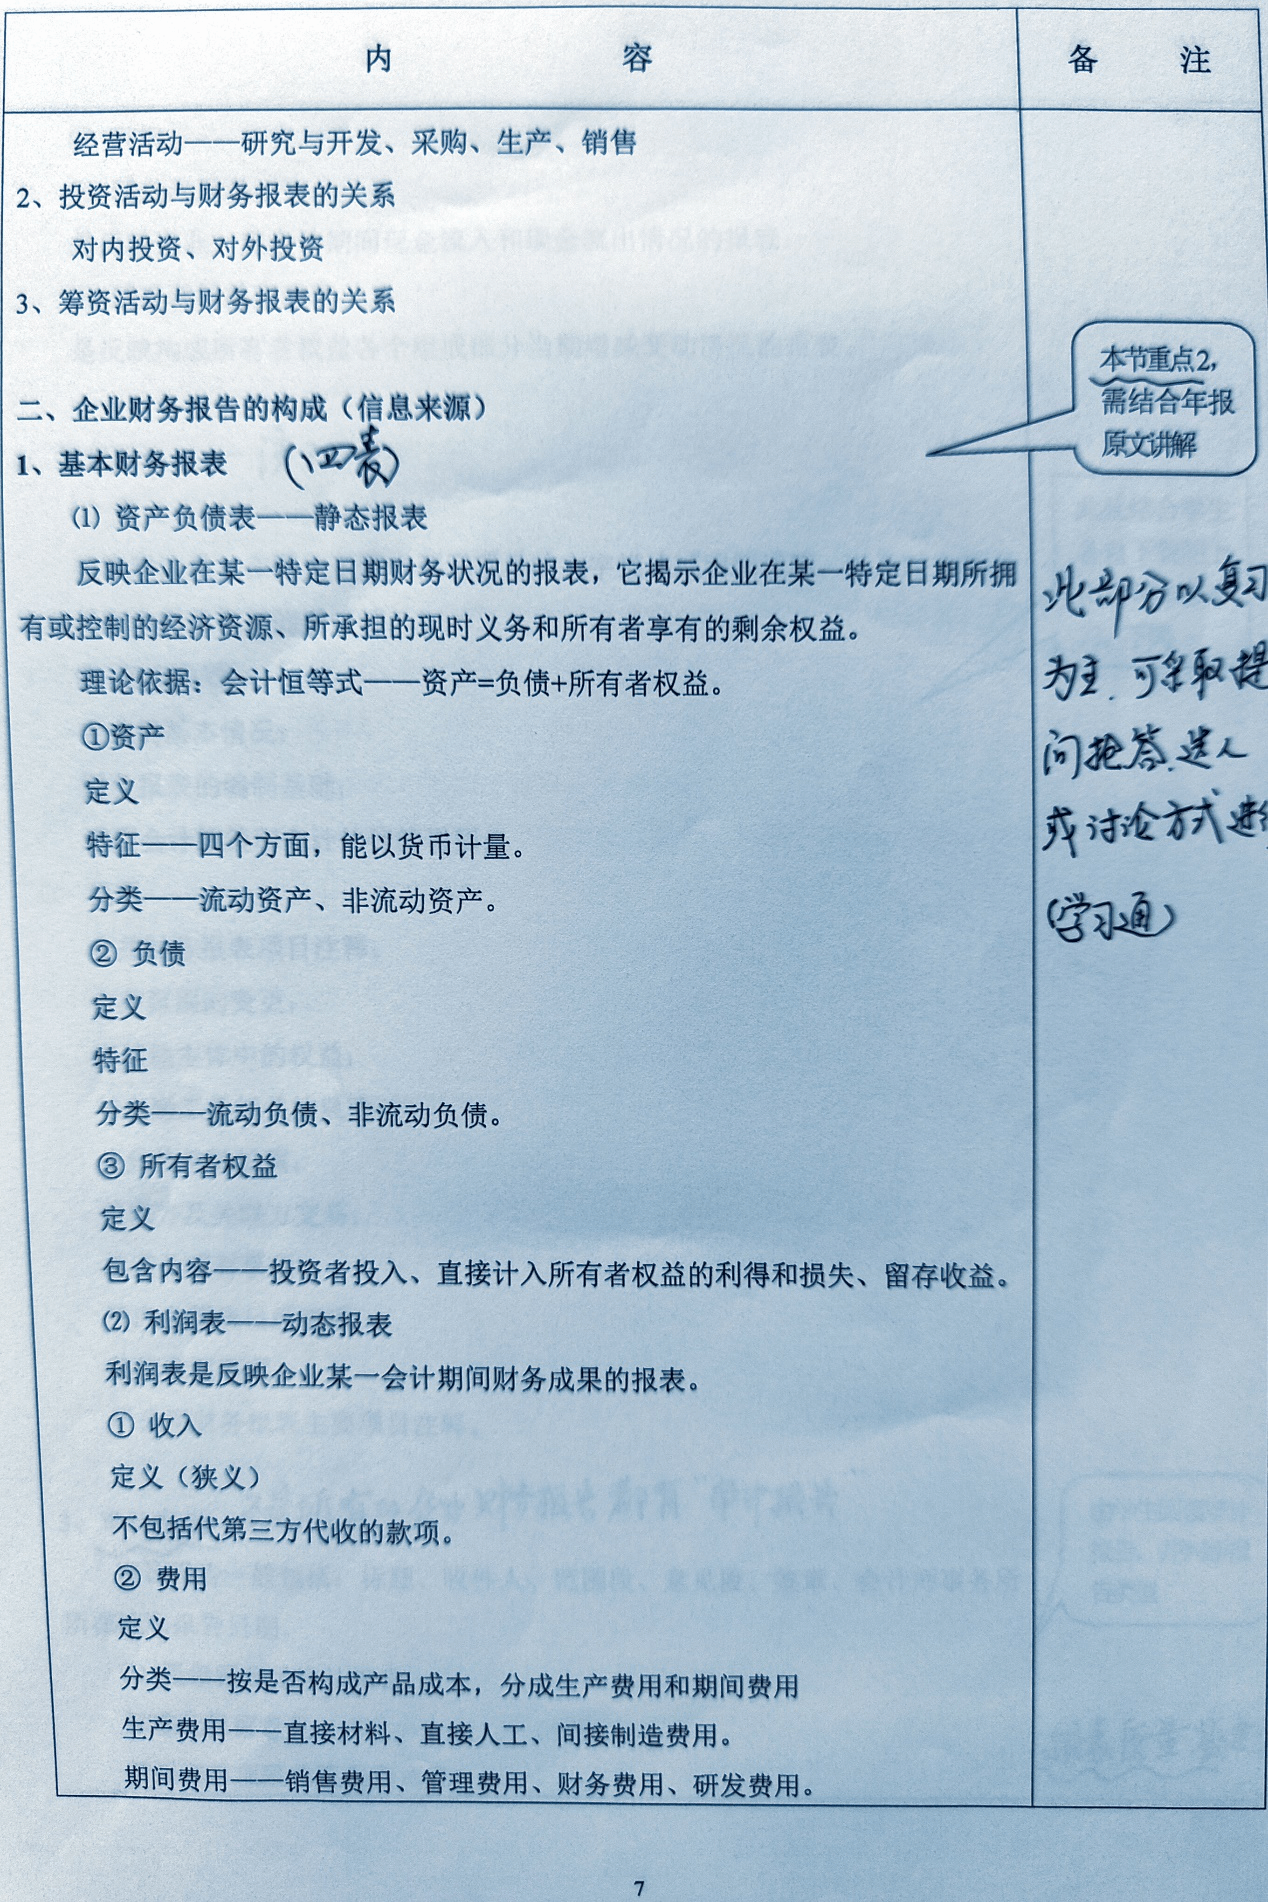 内 容 备 注
经营活动——研究与开发、采购、生产、销售
2、投资活动与财务报表的关系
对内投资、对外投资
3、筹资活动与财务报表的关系
本节重点2，
需结合年报
原文讲解
二、企业财务报告的构成（信息来源）
1、基本财务报表 （四表）
⑴ 资产负债表——静态报表
反映企业在某一特定日期财务状况的报表，它揭示企业在某一特定日期所拥
有或控制的经济资源、所承担的现时义务和所有者享有的剩余权益。
理论依据：会计恒等式——资产=负债+所有者权益。
①资产
定义
特征——四个方面，能以货币计量。
分类——流动资产、非流动资产。
② 负债
定义
特征
分类——流动负债、非流动负债。
③ 所有者权益
定义
包含内容——投资者投入、直接计入所有者权益的利得和损失、留存收益。
⑵ 利润表——动态报表
利润表是反映企业某一会计期间财务成果的报表。
① 收入
定义（狭义）
不包括代第三方代收的款项。
② 费用
定义
分类——按是否构成产品成本，分成生产费用和期间费用
生产费用——直接材料、直接人工、间接制造费用。
期间费用——销售费用、管理费用、财务费用、研发费用。
此部分以复习
为主，可采取提
问抢答、选人
或讨论方式进
（学习通）
7